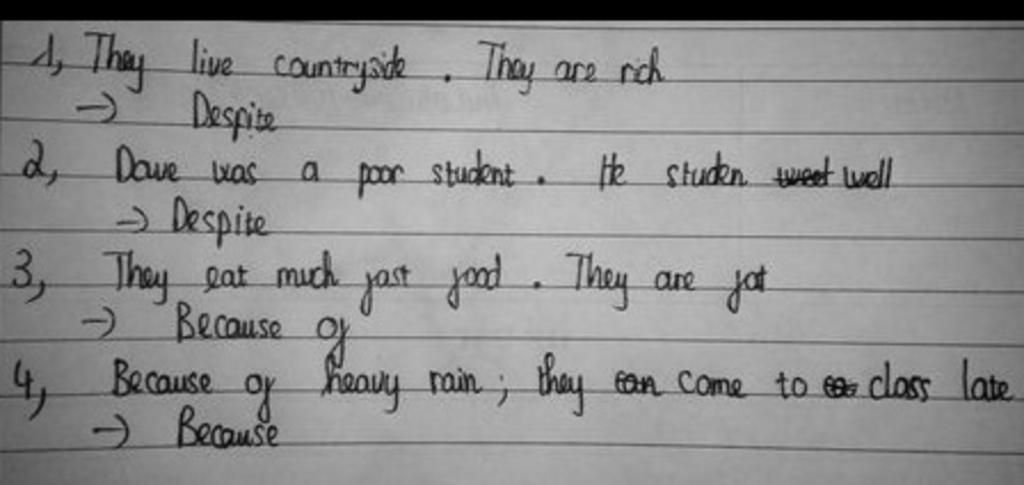 1, They live countryside . They are rich
→ Despite
2, Dave was a poor student . He studen well
→ Despite
3, They eat much fast food . They are fat
→ Because of
4, Because of heavy rain ; they come to class late
→ Because